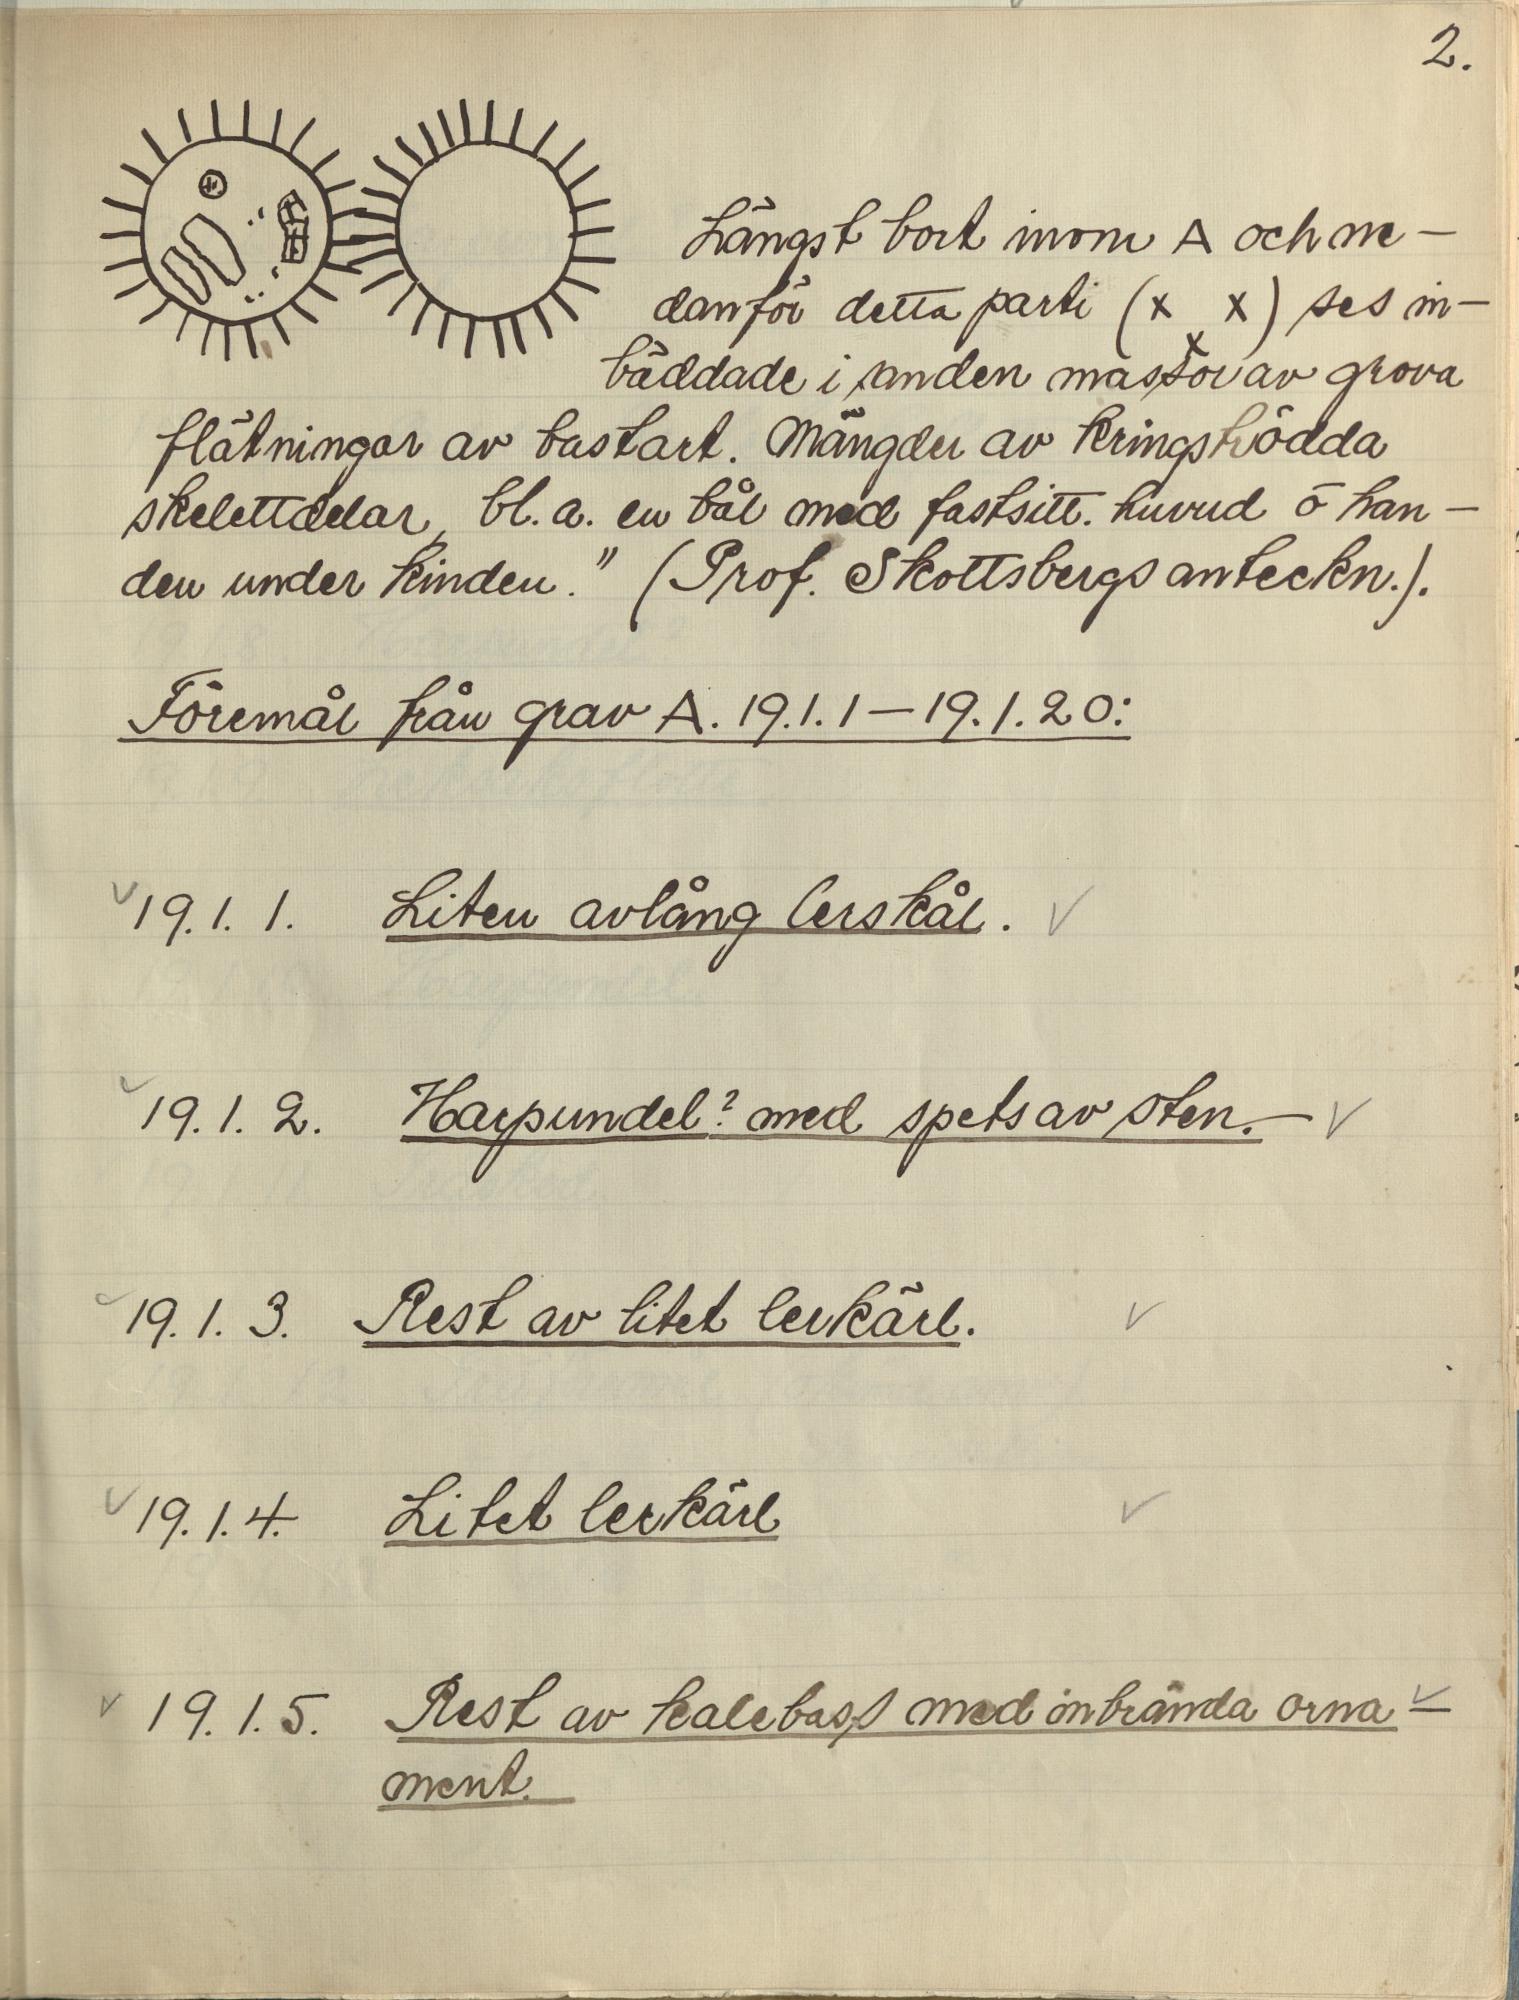 2.
Längst bort inom A och ne-
danför detta parti (x x x) ses in-
bäddade i sanden massor av grova
flätningar av bastart. Mängder av kringströdda
skelettdelar, bl. a. en bål med fastsitt. huvud o han-
den under kinden." (Prof. Skottsbergs anteckn.).
Föremål från grav A. 19.1.1 — 19.1.20:
19.1.1. Liten avlång lerskål.
19.1.2. Harpundel? med spets av sten.—
19.1.3. Rest av litet lerkärl.
19.1.4. Litet lerkärl
19.1.5. Rest av kalebass med inbrända orna-
ment.